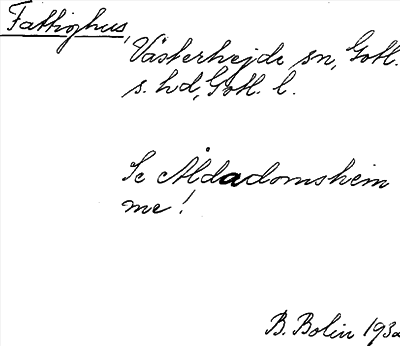 Fattighus,
Västerhejde sn, Gotl.
s. hd, Gotl. l.
Se Åldadomshem
me!
B. Bolin 193